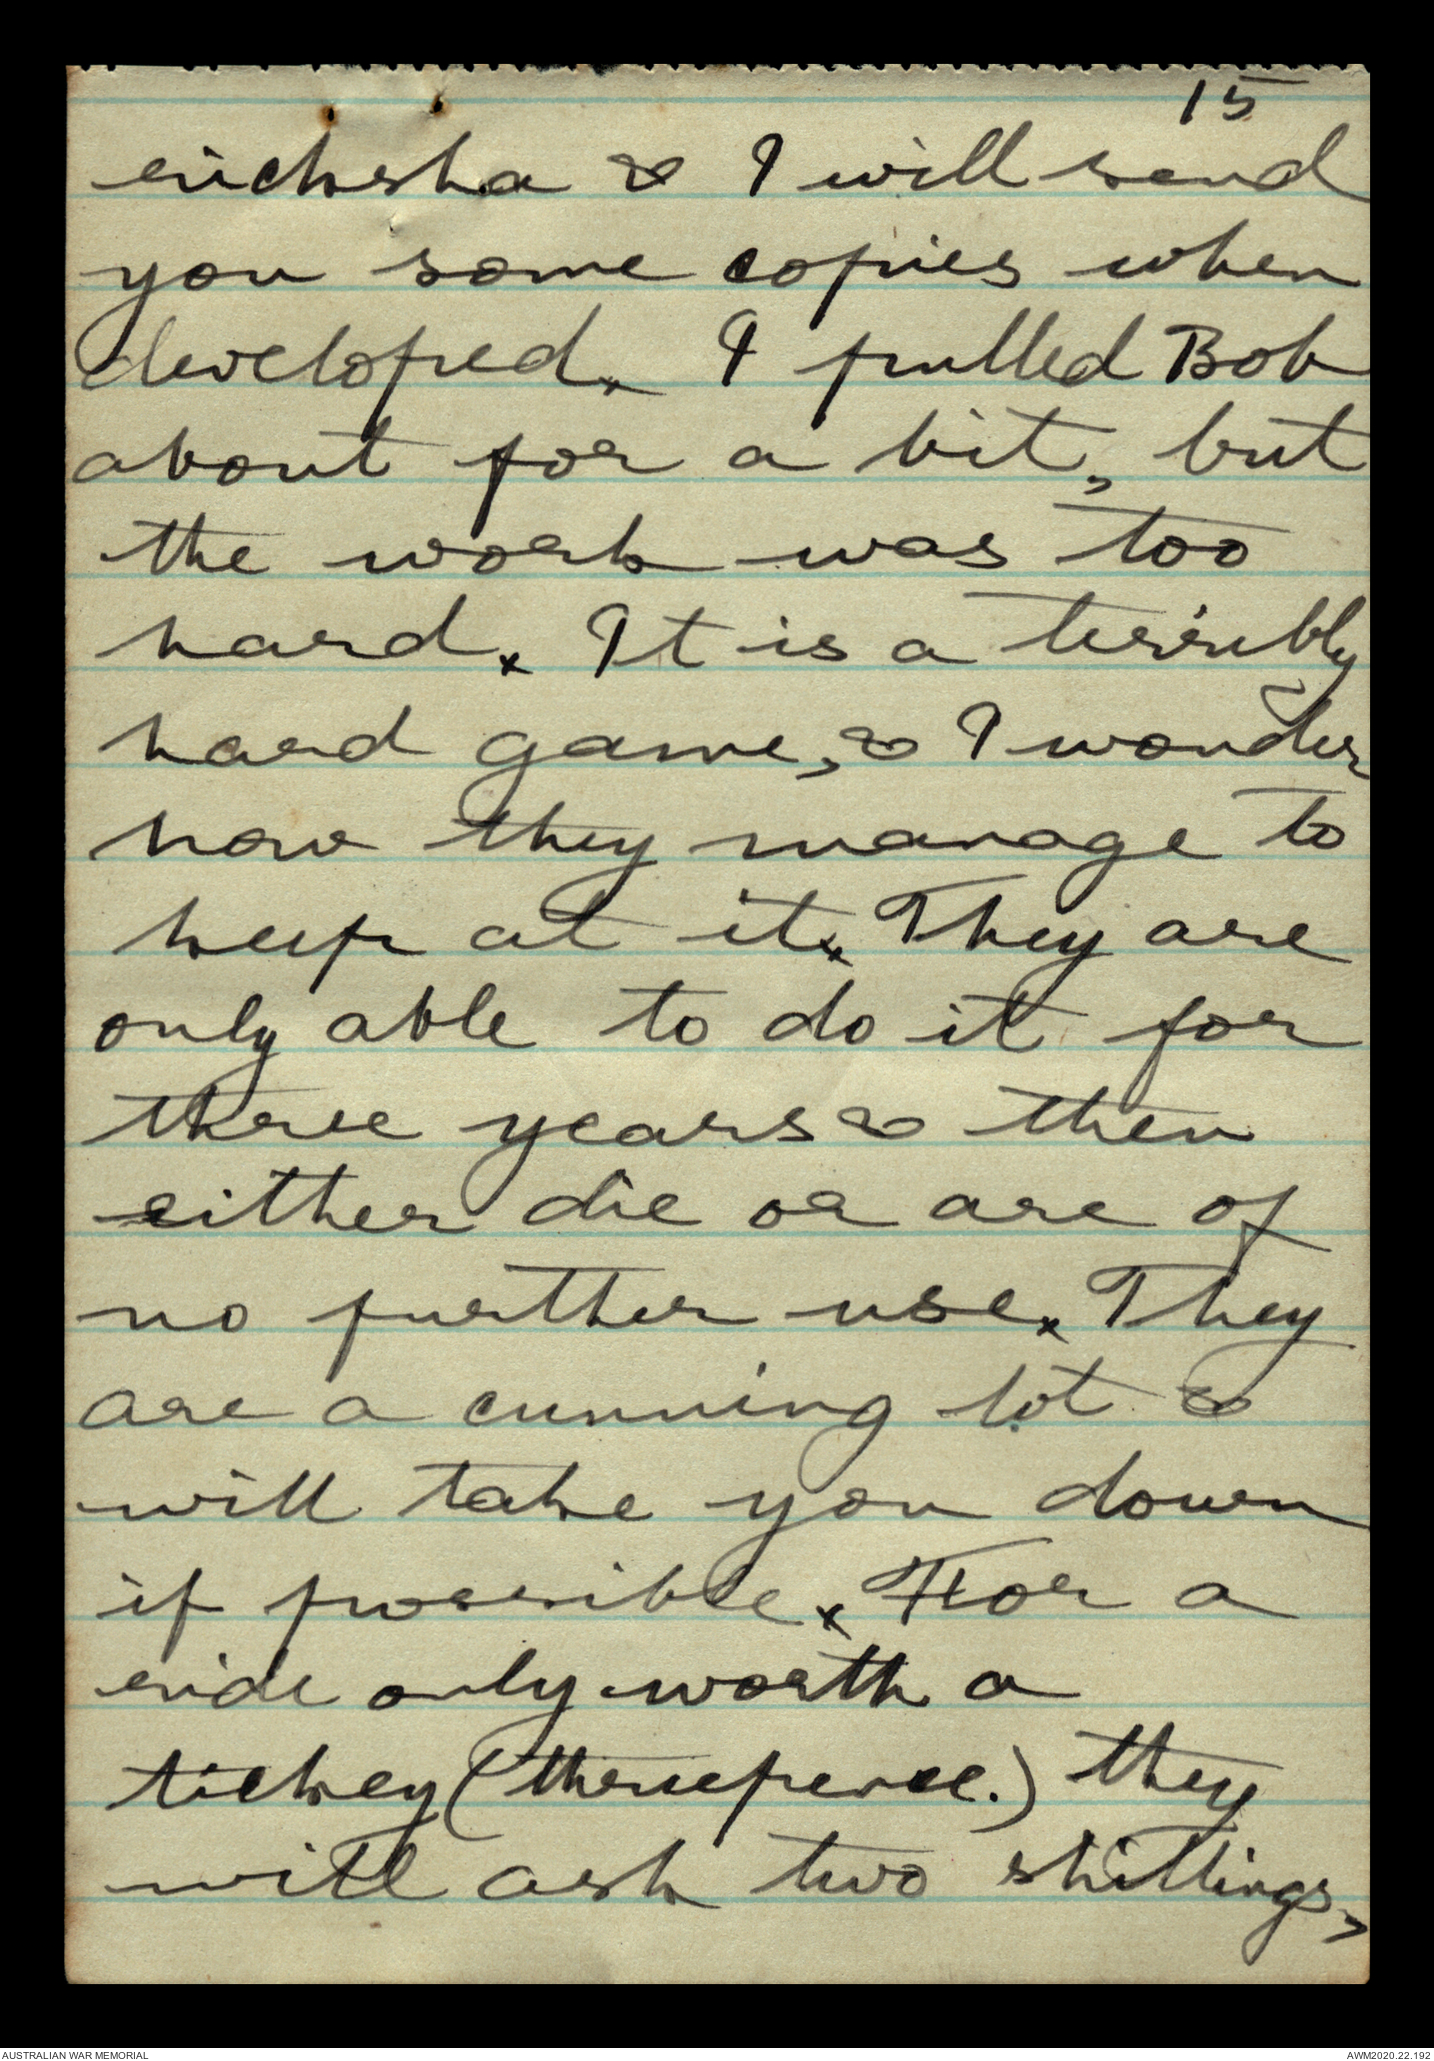 15
rickshа & I will send
you some copies when
developed. I pulled Bob
about for a bit, but
the work was too
hard. It is a terribly
hard game, & I wonder
how they manage to
keep at it. They are
only able to do it for
three years & then
either die or are of
no further use. They
are a cunning lot &
will take you down
if possible. For a
ride only worth a
tickey (threepence.) they
will ask two shillings,
AUSTRALIAN WAR MEMORIAL
AWM2020.22.192